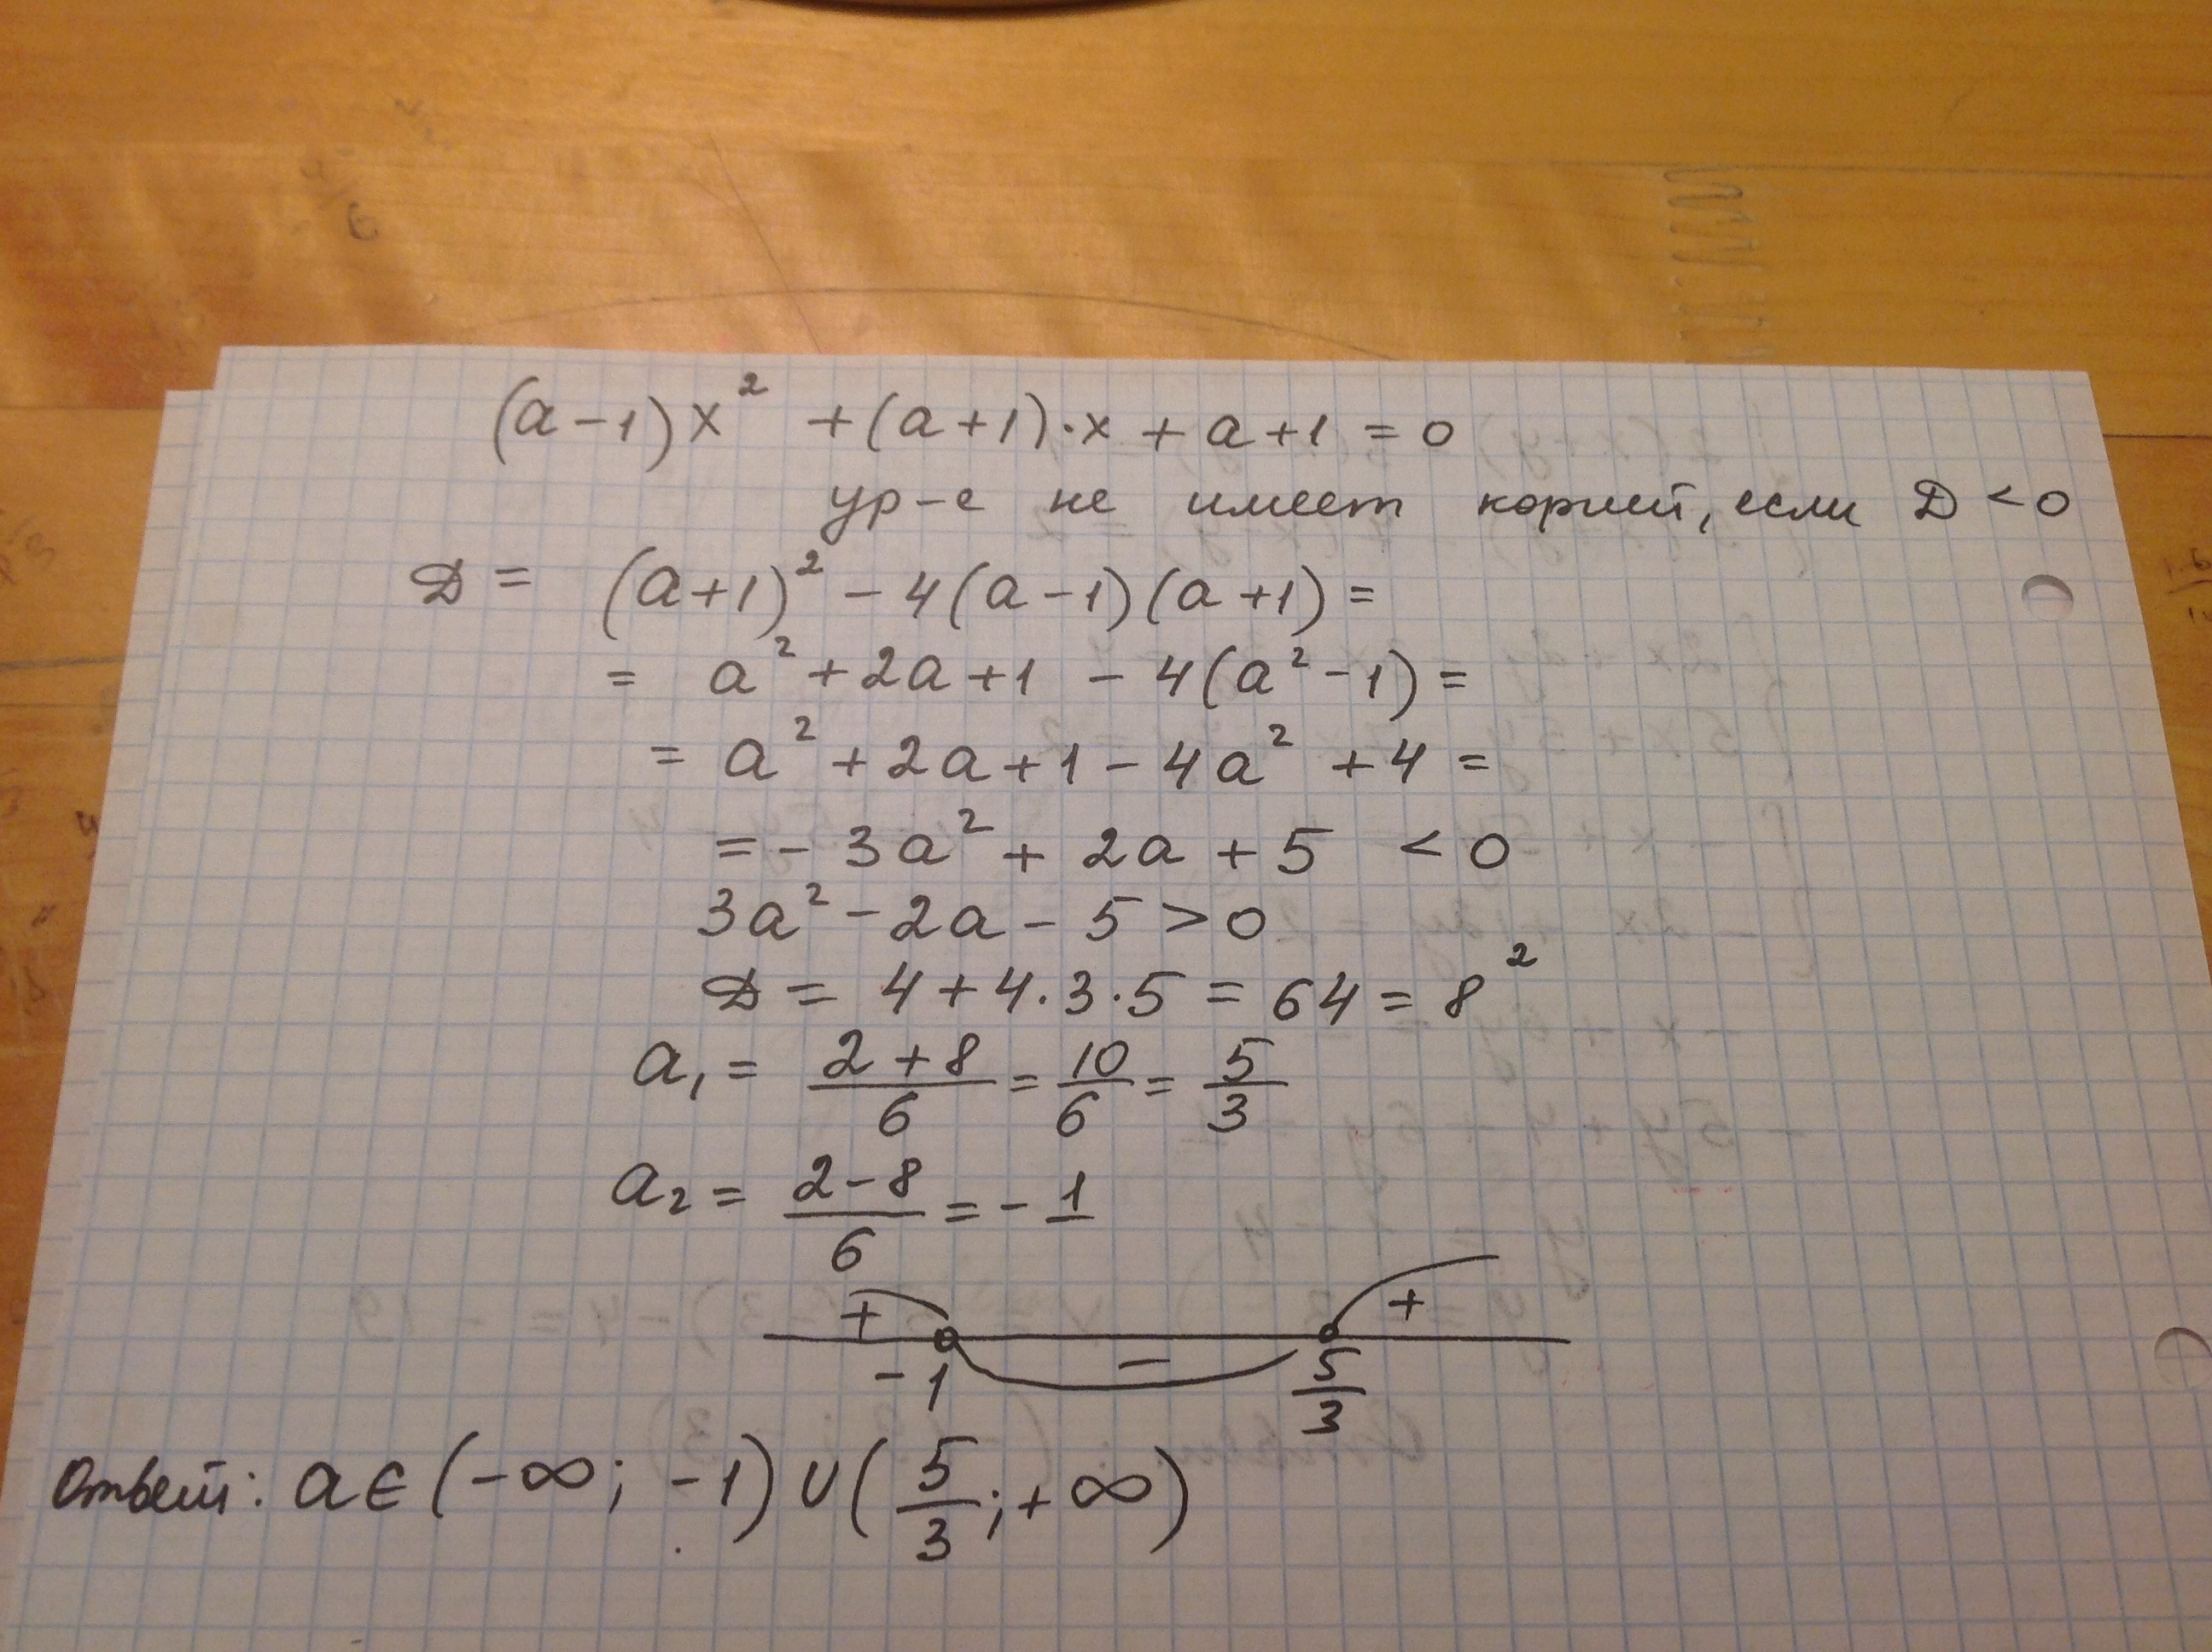 (a-1)x² +(a+1)·x + a+1 = 0
ур-е не имеет корней, если D < 0
D = (a+1)² - 4(a-1)(a+1) =
= a² + 2a + 1 - 4(a² - 1) =
= a² + 2a + 1 - 4a² + 4 =
= - 3a² + 2a + 5 < 0
3a² - 2a - 5 > 0
D = 4 + 4·3·5 = 64 = 8²
a₁ = (2+8)/6 = 10/6 = 5/3
a₂ = (2-8)/6 = - 1
+ - +
-1 5/3
Ответ: a ∈ (-∞; -1) ∪ (5/3; +∞)